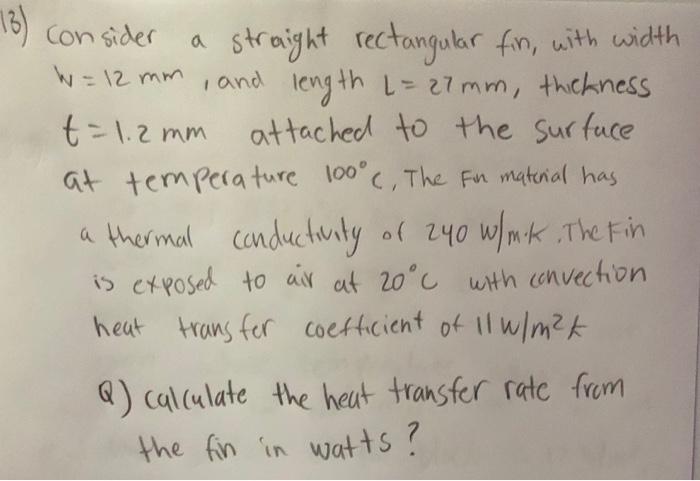 13) consider a straight rectangular fin, with width
W = 12 mm, and length L = 27 mm, thickness
t = 1.2 mm attached to the surface
at temperature 100°C, The Fin material has
a thermal conductivity of 240 W/m·K. The Fin
is exposed to air at 20°C with convection
heat transfer coefficient of 11 W/m²K
Q) calculate the heat transfer rate from
the fin in watts?